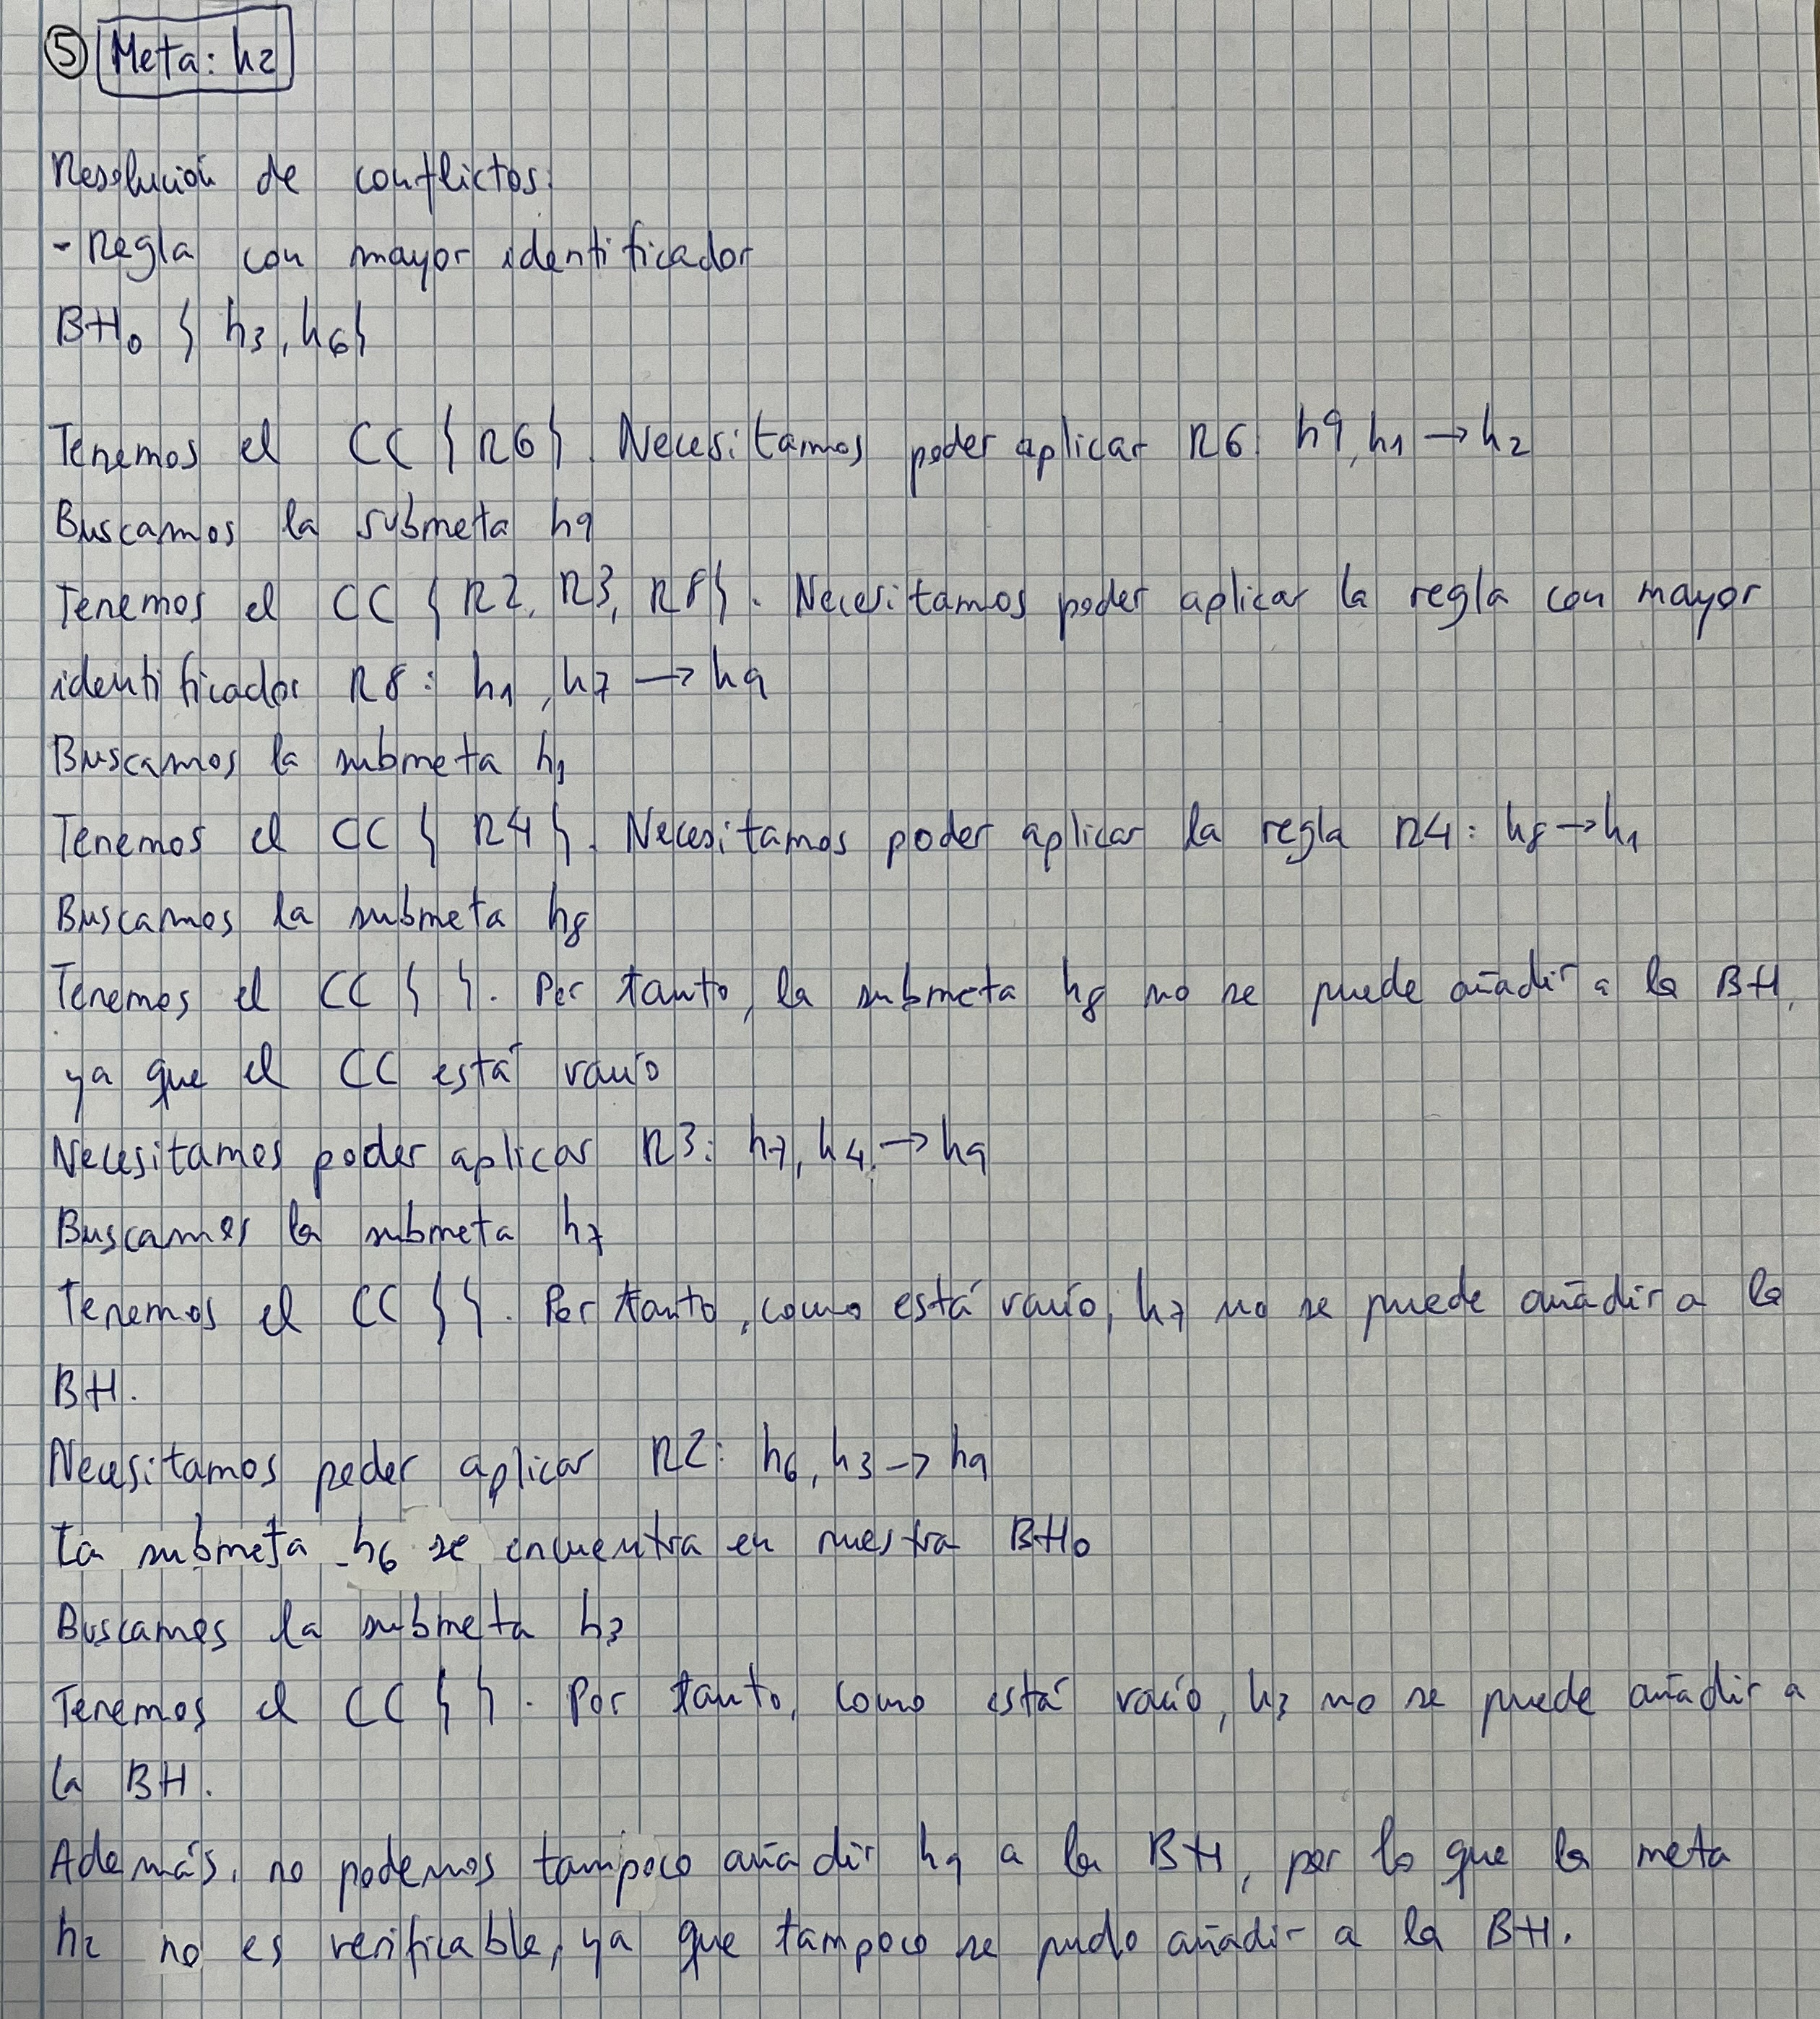 ⑤ Meta: h2
Resolución de conflictos:
- Regla con mayor identificador
BH0 { h3, h6}
Tenemos el CC { R6}. Necesitamos poder aplicar R6: h9, h1 → h2
Buscamos la submeta h9
Tenemos el CC { R2, R3, R8}. Necesitamos poder aplicar la regla con mayor
identificador R8: h1, h7 → h9
Buscamos la submeta h1
Tenemos el CC { R4 }. Necesitamos poder aplicar la regla R4: h8 → h1
Buscamos la submeta h8
Tenemos el CC { }. Por tanto, la submeta h8 no se puede añadir a la BH,
ya que el CC está vacío
Necesitamos poder aplicar R3: h7, h4 → h9
Buscamos la submeta h7
Tenemos el CC { }. Por tanto, como está vacío, h7 no se puede añadir a la
BH.
Necesitamos poder aplicar R2: h6, h3 → h9
La submeta h6 se encuentra en nuestra BH0
Buscamos la submeta h3
Tenemos el CC { }. Por tanto, como está vacío, h3 no se puede añadir a
la BH.
Además, no podemos tampoco añadir h9 a la BH, por lo que la meta
h2 no es verificable, ya que tampoco se pudo añadir a la BH.